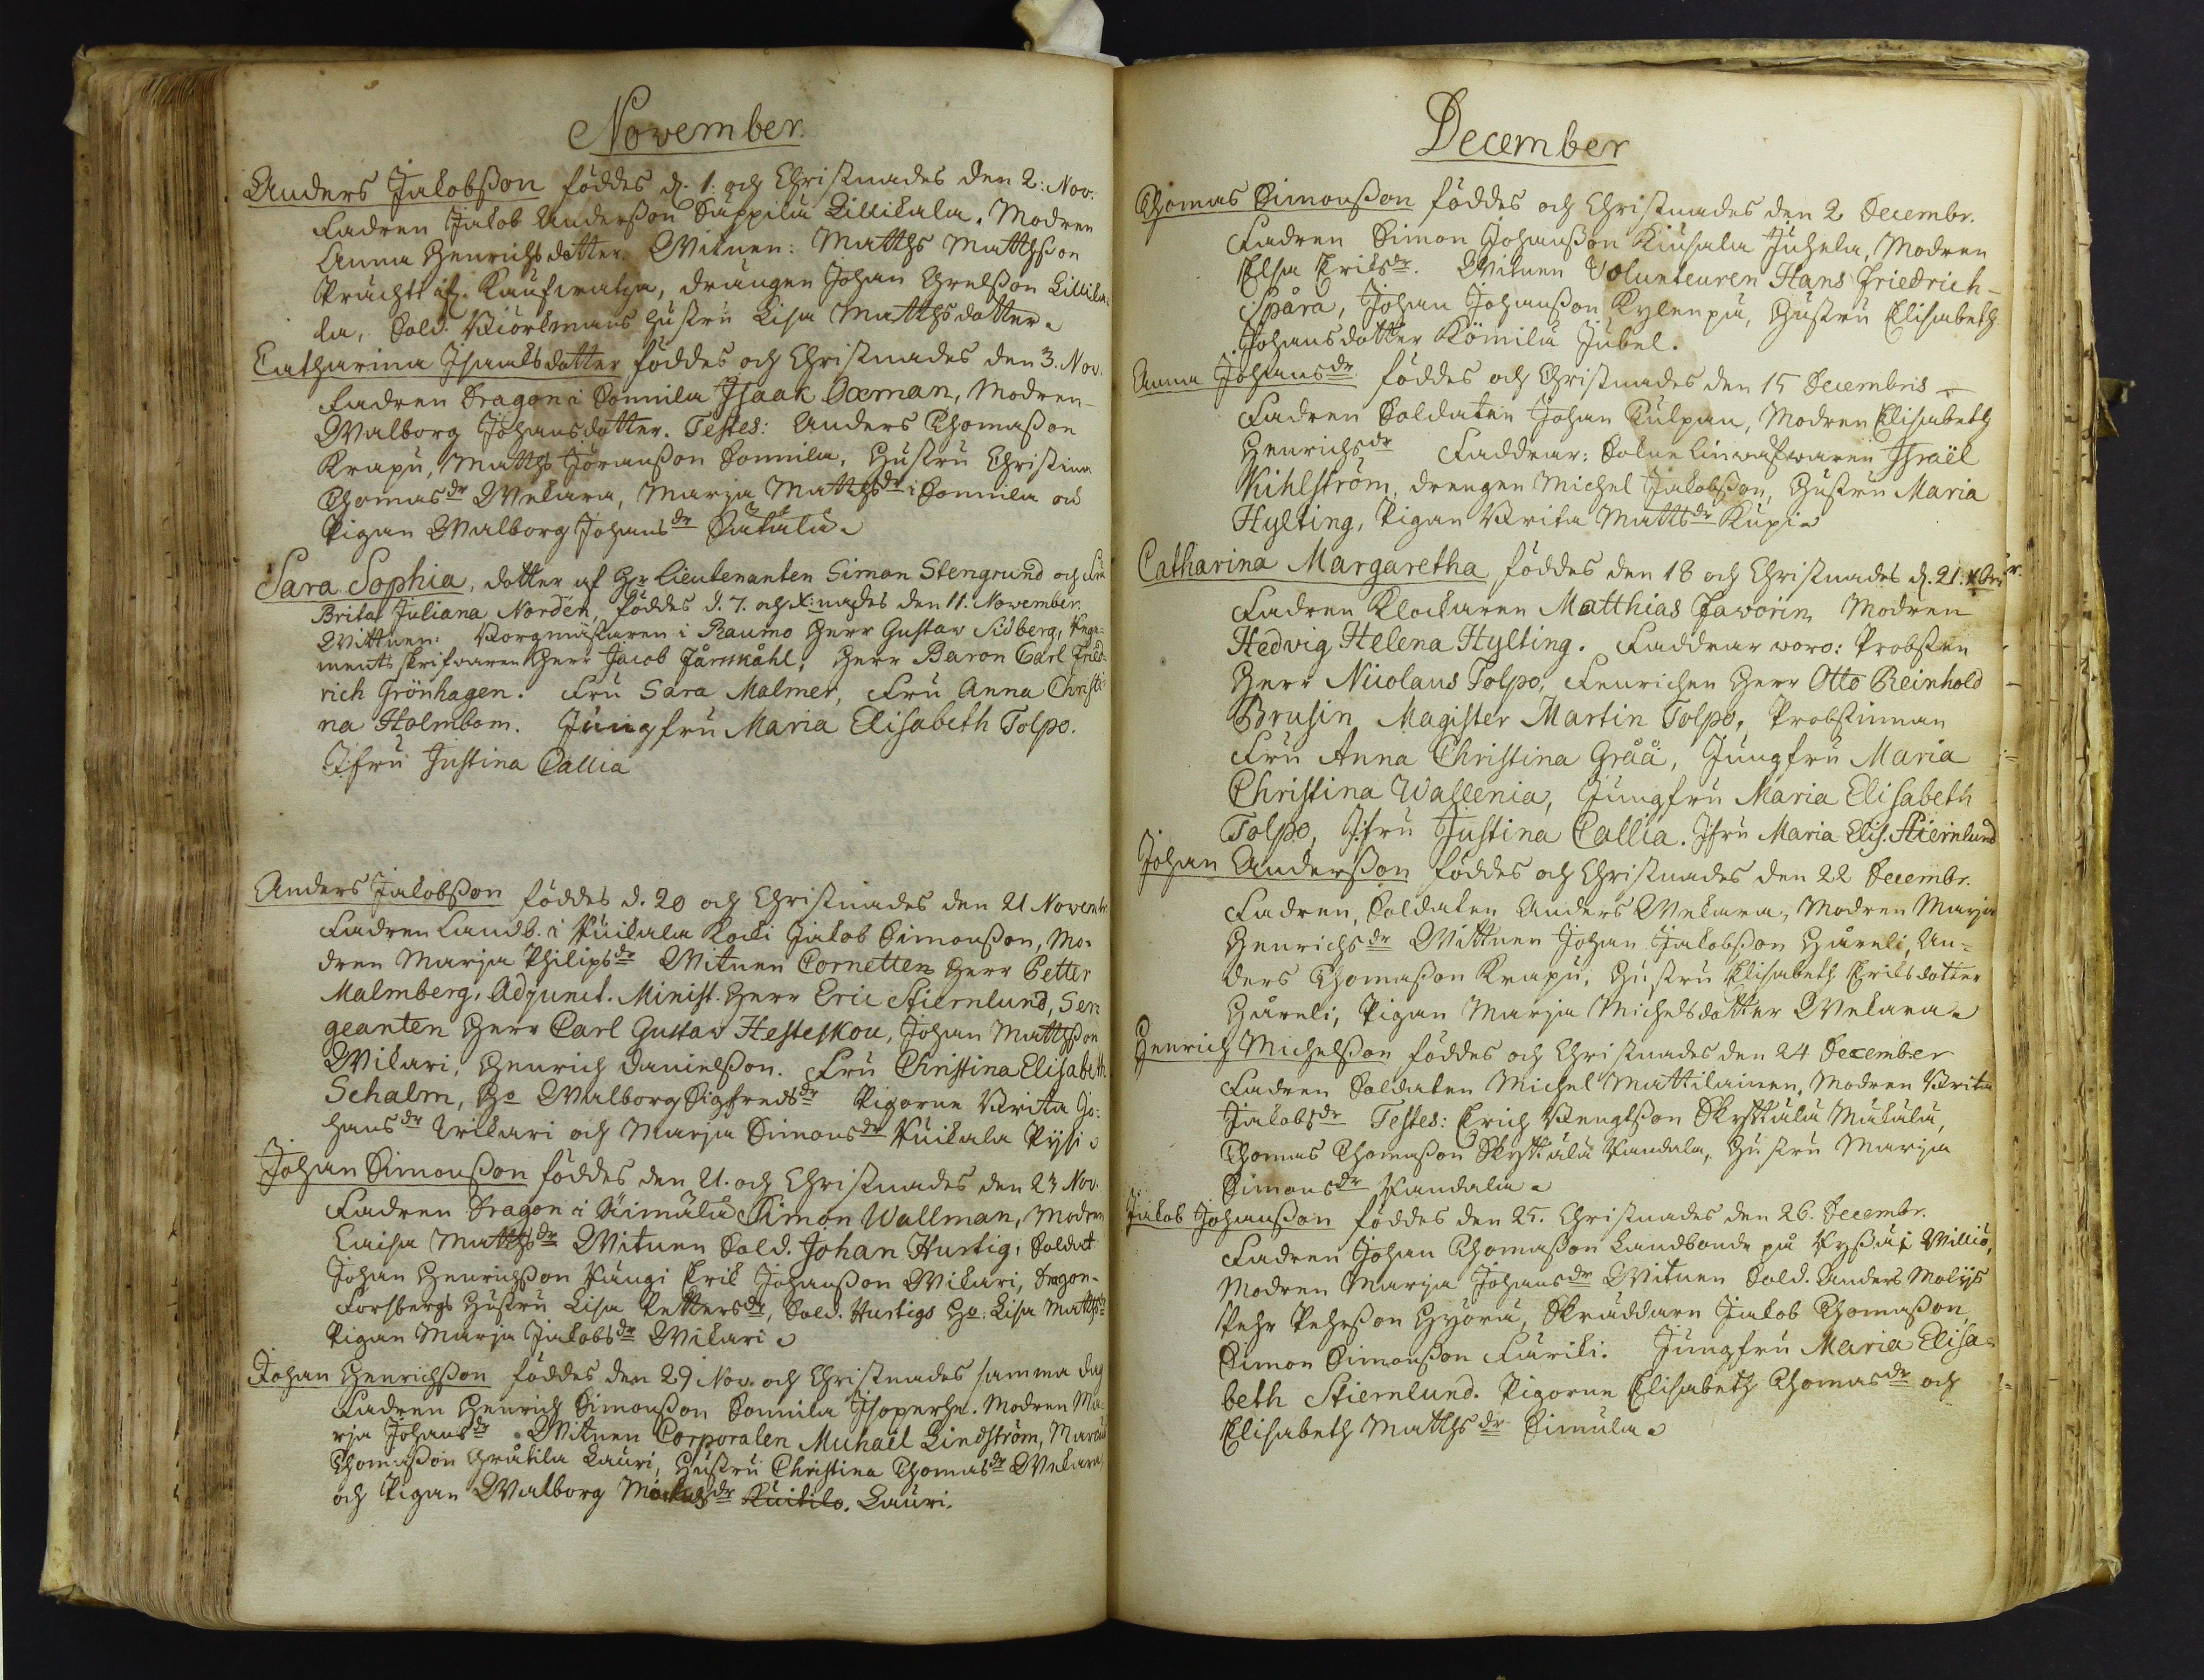 November.
Anders Jakobßon föddes d. 1. och Christnades den 2. Nov.
Fadren Jakob Anderßon Säppilä Lillikala. Modren
Anna Henrichsdotter. Witnen: Matths Matthßon
drängen Johan Grelßon Lillika-
la, Sold. Biörkmans hustru Lisa Matthsdotter.
Catharina Isaaksdotter föddes och Christnades den 3. Nov.
Fadren Dragon i Sonnila Isaak Oxman, Modren
Walborg Johansdotter. Testes: Anders Thomaßon
Krapu, Matths Jöranßon Sonnila, Hustru Christina
Thomasdr Wekara, Marja Matthsdr i Sonnila och
Pigan Walborg Johansdr Säkälä.
Sara Sophia, dotter af Hr Lieutenanten Simon Stengrund och Fru
Brita Juliana Nordén, föddes d. 7. och X:nades den 11. November.
Wittnen: Borgmästaren i Raumo Herr Gustav Sidberg, Rege-
mentsskrifwaren Herr Jacob Järnskåhl, Herr Baron Carl Fried-
rich Grönhagen. Fru Sara Malmer, Fru Anna Christi-
na Holmbom. Jungfru Maria Elisabeth Polpo.
Jfru Justina Callia
Anders Jakobßon föddes d. 20 och Christnades den 21 Novembr.
Fadren Landb. i Kuikala Kocki Jakob Simonßon, Mo-
dren Marja Philipsdr Witnen Cornetten Herr Petter
Malmberg, Adjunct. Minist. Herr Eric Stiernlund, Ser-
geanten Herr Carl Gustav Hesteskou, Johan Matthßon
Wikari, Henrich Danielßon. Fru Christina Elisabeth
Schalm, Ho Walborg Sigfredsdr Pigorne Brita Jo-
hansdr Wikari och Marja Simonsdr Kuikala Pysi.
Johan Simonßon föddes den 21. och Christnades den 23 Nov.
Fadren Dragon i Äimälä Simon Wallman, Modren
Caisa Matthsdr Witnen Sold. Johan Hurtig, Soldat
Johan Henrichßon Kangi Erik Johanßon Wikari, Dragon-
Forsbergs Hustru Lisa Pettersdr, Sold. Hurtigs Ho. Lisa Matthsdr
Pigan Marja Jakobsdr Wikari.
Johan Henrichßon föddes den 29 Nov. och Christnades samma dag
Fadren Henrich Simonßon Sonnila Isoperhe. Modren Ma-
rja Johansdr. Witnen Corporalen Michaël Lindström, Marcus
Thomaßon Lauri, Hustru Christina Thomasdr Wekara,
och Pigan Walborg Michelsdr Kuikilo. Lauri.
December
Thomas Simonßon föddes och Christnades den 2 Decembr.
Fadren Simon Johanßon Kiusala Juhela, Modren
Elsa Eriksdr. Witnen Volunteuren Hans Friedrich
Spåra, Johan Johanßon Kylenpä, Hustru Elisabeth
Johansdotter Kömilä Jubel.
Anna Johansdr föddes och Christnades den 15 Decembris
Fadren Soldaten Johan Tulpan, Modren Elisabeth
Henrichsdr Faddrar: Israël
Kihlström, drengen Michel Jakobßon, Hustru Maria
Hylting, Pigan Brita Mattsdr Kupi.
Catharina Margaretha föddes den 18 och Christnades d. 21. Xbris
Fadren Klockaren Matthias Favorin, Modren
Hedvig Helena Hylting. Faddrar woro: Probsten
Herr Nicolaus Polpo, Fenrichen Herr Otto Reinhold
Brusin, Magister Martin Polpo, Probstinnan
Fru Anna Christina Gråå, Jungfru Maria
Christina Wallenia, Jungfru Maria Elisabeth
Polpo, Jfru Justina Callia. Jfru Maria Elis. Stiernlund
Johan Anderßon föddes och Christnades den 22 Decembr.
Fadren, Soldaten Anders Wekara, Modren Marja
Henrichsdr Wittnen Johan Jakobßon Hareli, An-
ders Thomaßon Krapu, Hustru Elisabeth Eriksdotter
Hareli, Pigan Marja Michelsdotter Wekara.
Henrich Michelßon föddes och Christnades den 24 December
Fadren Soldaten Michel Mattilainen, Modren Brita
Jakobsdr Testes: Erich Bengtßon Skyttälä Mäkälä,
Thomas Thomaßon Skyttälä Kandola, Hustru Marja
Simonsdr Kandola.
Jakob Johanßon föddes den 25. Christnades den 26. Decembr.
Fadren Johan Thomaßon Landbonde på Willio,
Modren Marja Johansdr Witnen Sold. Anders Molijs
Pehr Pehrßon Hyörä, Skräddaren Jakob Thomaßon,
Simon Simonßon Kariki. Jungfru Maria Elisa-
beth Stiernlund. Pigorne Elisabeth Thomasdr och
Elisabeth Matthsdr Simula.